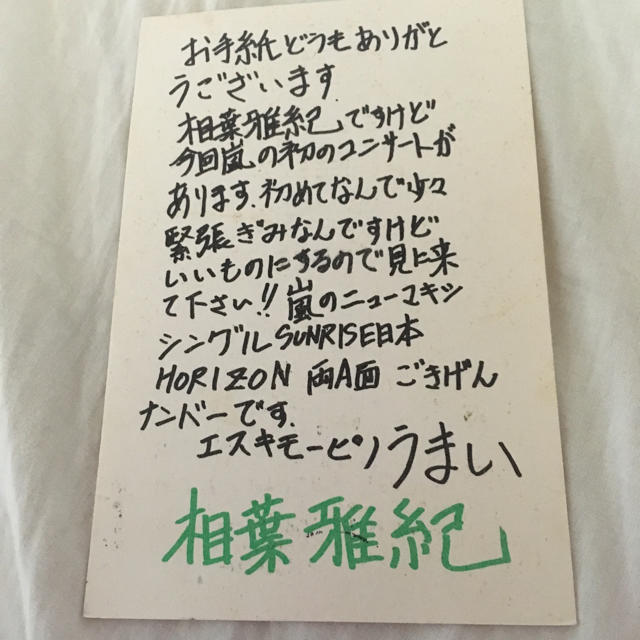 お手紙どうもありがと
うございます.
相葉雅紀ですけど
今回嵐の初のコンサートが
あります.初めてなんで少々
緊張ぎみなんですけど
いいものにするので見に来
て下さい!!嵐のニューマキシ
シングルSUNRISE日本
HORIZON 両A面 ごきげん
ナンバーです.
エスキモーピノうまい
相葉雅紀